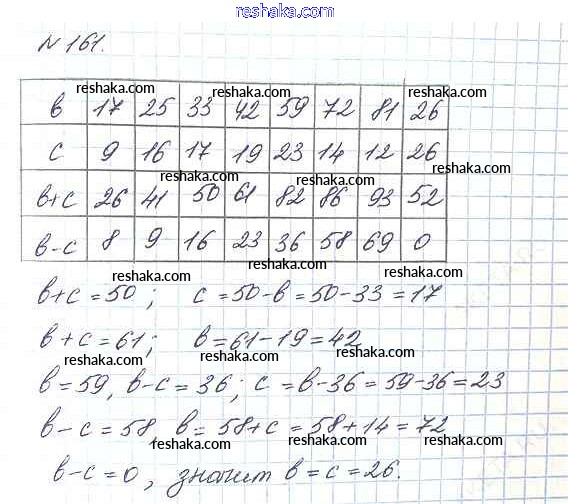 reshaka.com
N 161.
reshaka.com reshaka.com reshaka.com
в 17 25 33 42 59 72 81 26
reshaka.com reshaka.com
с 9 16 17 19 23 14 12 26
reshaka.com reshaka.com
в+с 26 41 50 61 82 86 93 52
в-с 8 9 16 23 36 58 69 0
reshaka.com reshaka.com reshaka.com
в+с=50; с=50-в=50-33=17
reshaka.com reshaka.com
в+с=61; в=61-19=42
reshaka.com reshaka.com
в=59, в-с=36; с=в-36=59-36=23
reshaka.com reshaka.com
в-с=58 в=58+с=58+14=72
reshaka.com reshaka.com
в-с=0, значит в=с=26.
reshaka.com